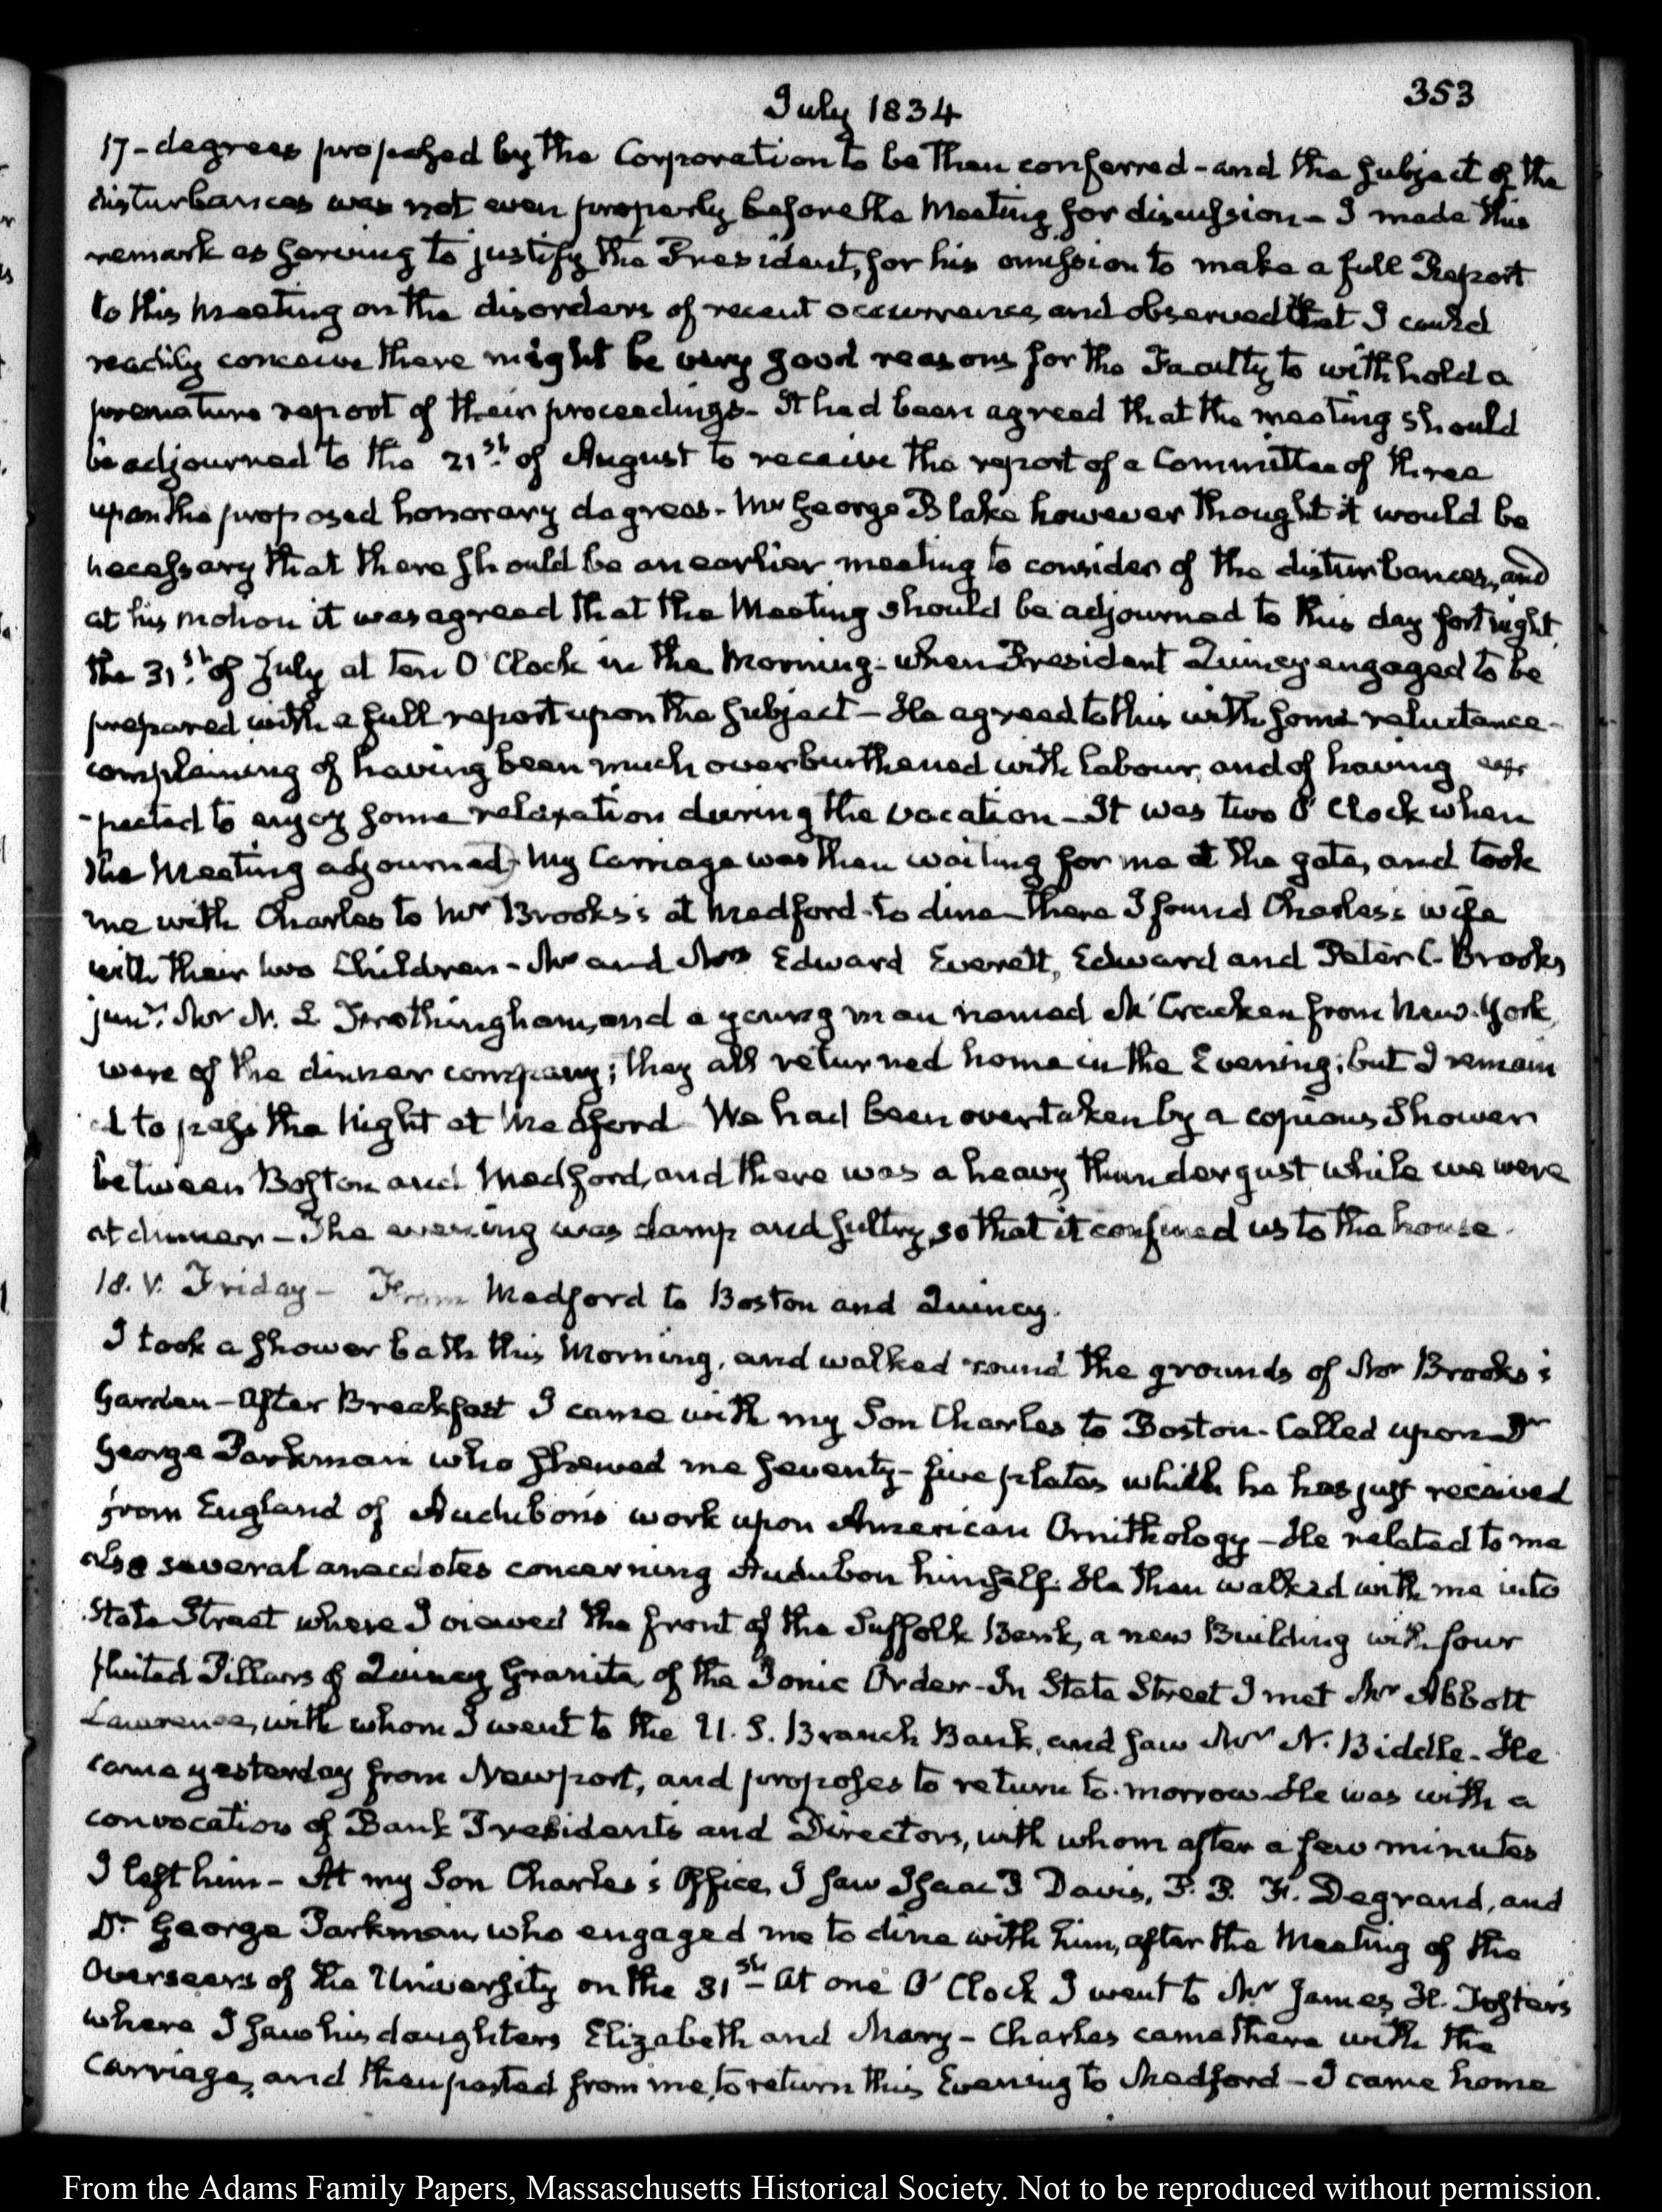 353
July 1834
17 - degrees proposed by the Corporation to be then conferred - and the subject of the
disturbances was not even properly before the Meeting for discussion - I made this
remark as serving to justify the President, for his omission to make a full Report
to this Meeting on the disorders of recent occurrence, and observed that I could
readily conceive there might be very good reasons for the Faculty to withhold a
premature report of their proceedings - It had been agreed that the meeting should
be adjourned to the 21st of August to receive the report of a Committee of three
upon the proposed honorary degrees - Mr George Blake however thought it would be
necessary that there should be an earlier meeting to consider of the disturbances, and
at his motion it was agreed that the Meeting should be adjourned to this day fortnight
the 31st of July at ten O'Clock in the Morning - when President Quincy engaged to be
prepared with a full report upon the subject - He agreed to this with some reluctance -
complaining of having been much overburthened with labour, and of having ex
-pected to enjoy some relaxation during the vacation - It was two O'Clock when
the Meeting adjourned - My Carriage was then waiting for me at the gate, and took
me with Charles to Mr Brooks's at Medford - to dine - There I found Charles's wife
with their two Children - Mr and Mrs Edward Everett, Edward and Peter C. Brooks,
junr. Mr N. L. Frothingham, and a young man named Mc'Cracken from New-York,
were of the dinner company; they all returned home in the Evening; but I remain
ed to pass the Night at Medford - We had been overtaken by a copious shower
between Boston and Medford, and there was a heavy thundergust while we were
at dinner - The evening was damp and sultry, so that it confined us to the house.
18. V. Friday - From Medford to Boston and Quincy.
I took a shower bath this Morning, and walked round the grounds of Mr Brooks's
Garden - After Breakfast I came with my Son Charles to Boston - Called upon Dr
George Parkman who shewed me seventy-five plates which he has just received
from England of Audubon's work upon American Ornithology - He related to me
also several anecdotes concerning Audubon himself. He then walked with me into
State Street where I viewed the front of the Suffolk Bank, a new Building with four
fluted Pillars of Quincy Granite, of the Ionic Order - In State Street I met Mr Abbott
Lawrence, with whom I went to the U.S. Branch Bank, and saw Mr N. Biddle - He
came yesterday from Newport, and proposes to return to-morrow - He was with a
convocation of Bank Presidents and Directors, with whom after a few minutes
I left him - At my Son Charles's Office, I saw Isaac P Davis, P. P. F. Degrand, and
Dr George Parkman, who engaged me to dine with him, after the Meeting of the
Overseers of the University on the 31st - At one O'Clock I went to Mr James H. Foster's
where I saw his daughters Elizabeth and Mary - Charles came there with the
Carriage, and then parted from me, to return this Evening to Medford - I came home
From the Adams Family Papers, Massachusetts Historical Society. Not to be reproduced without permission.